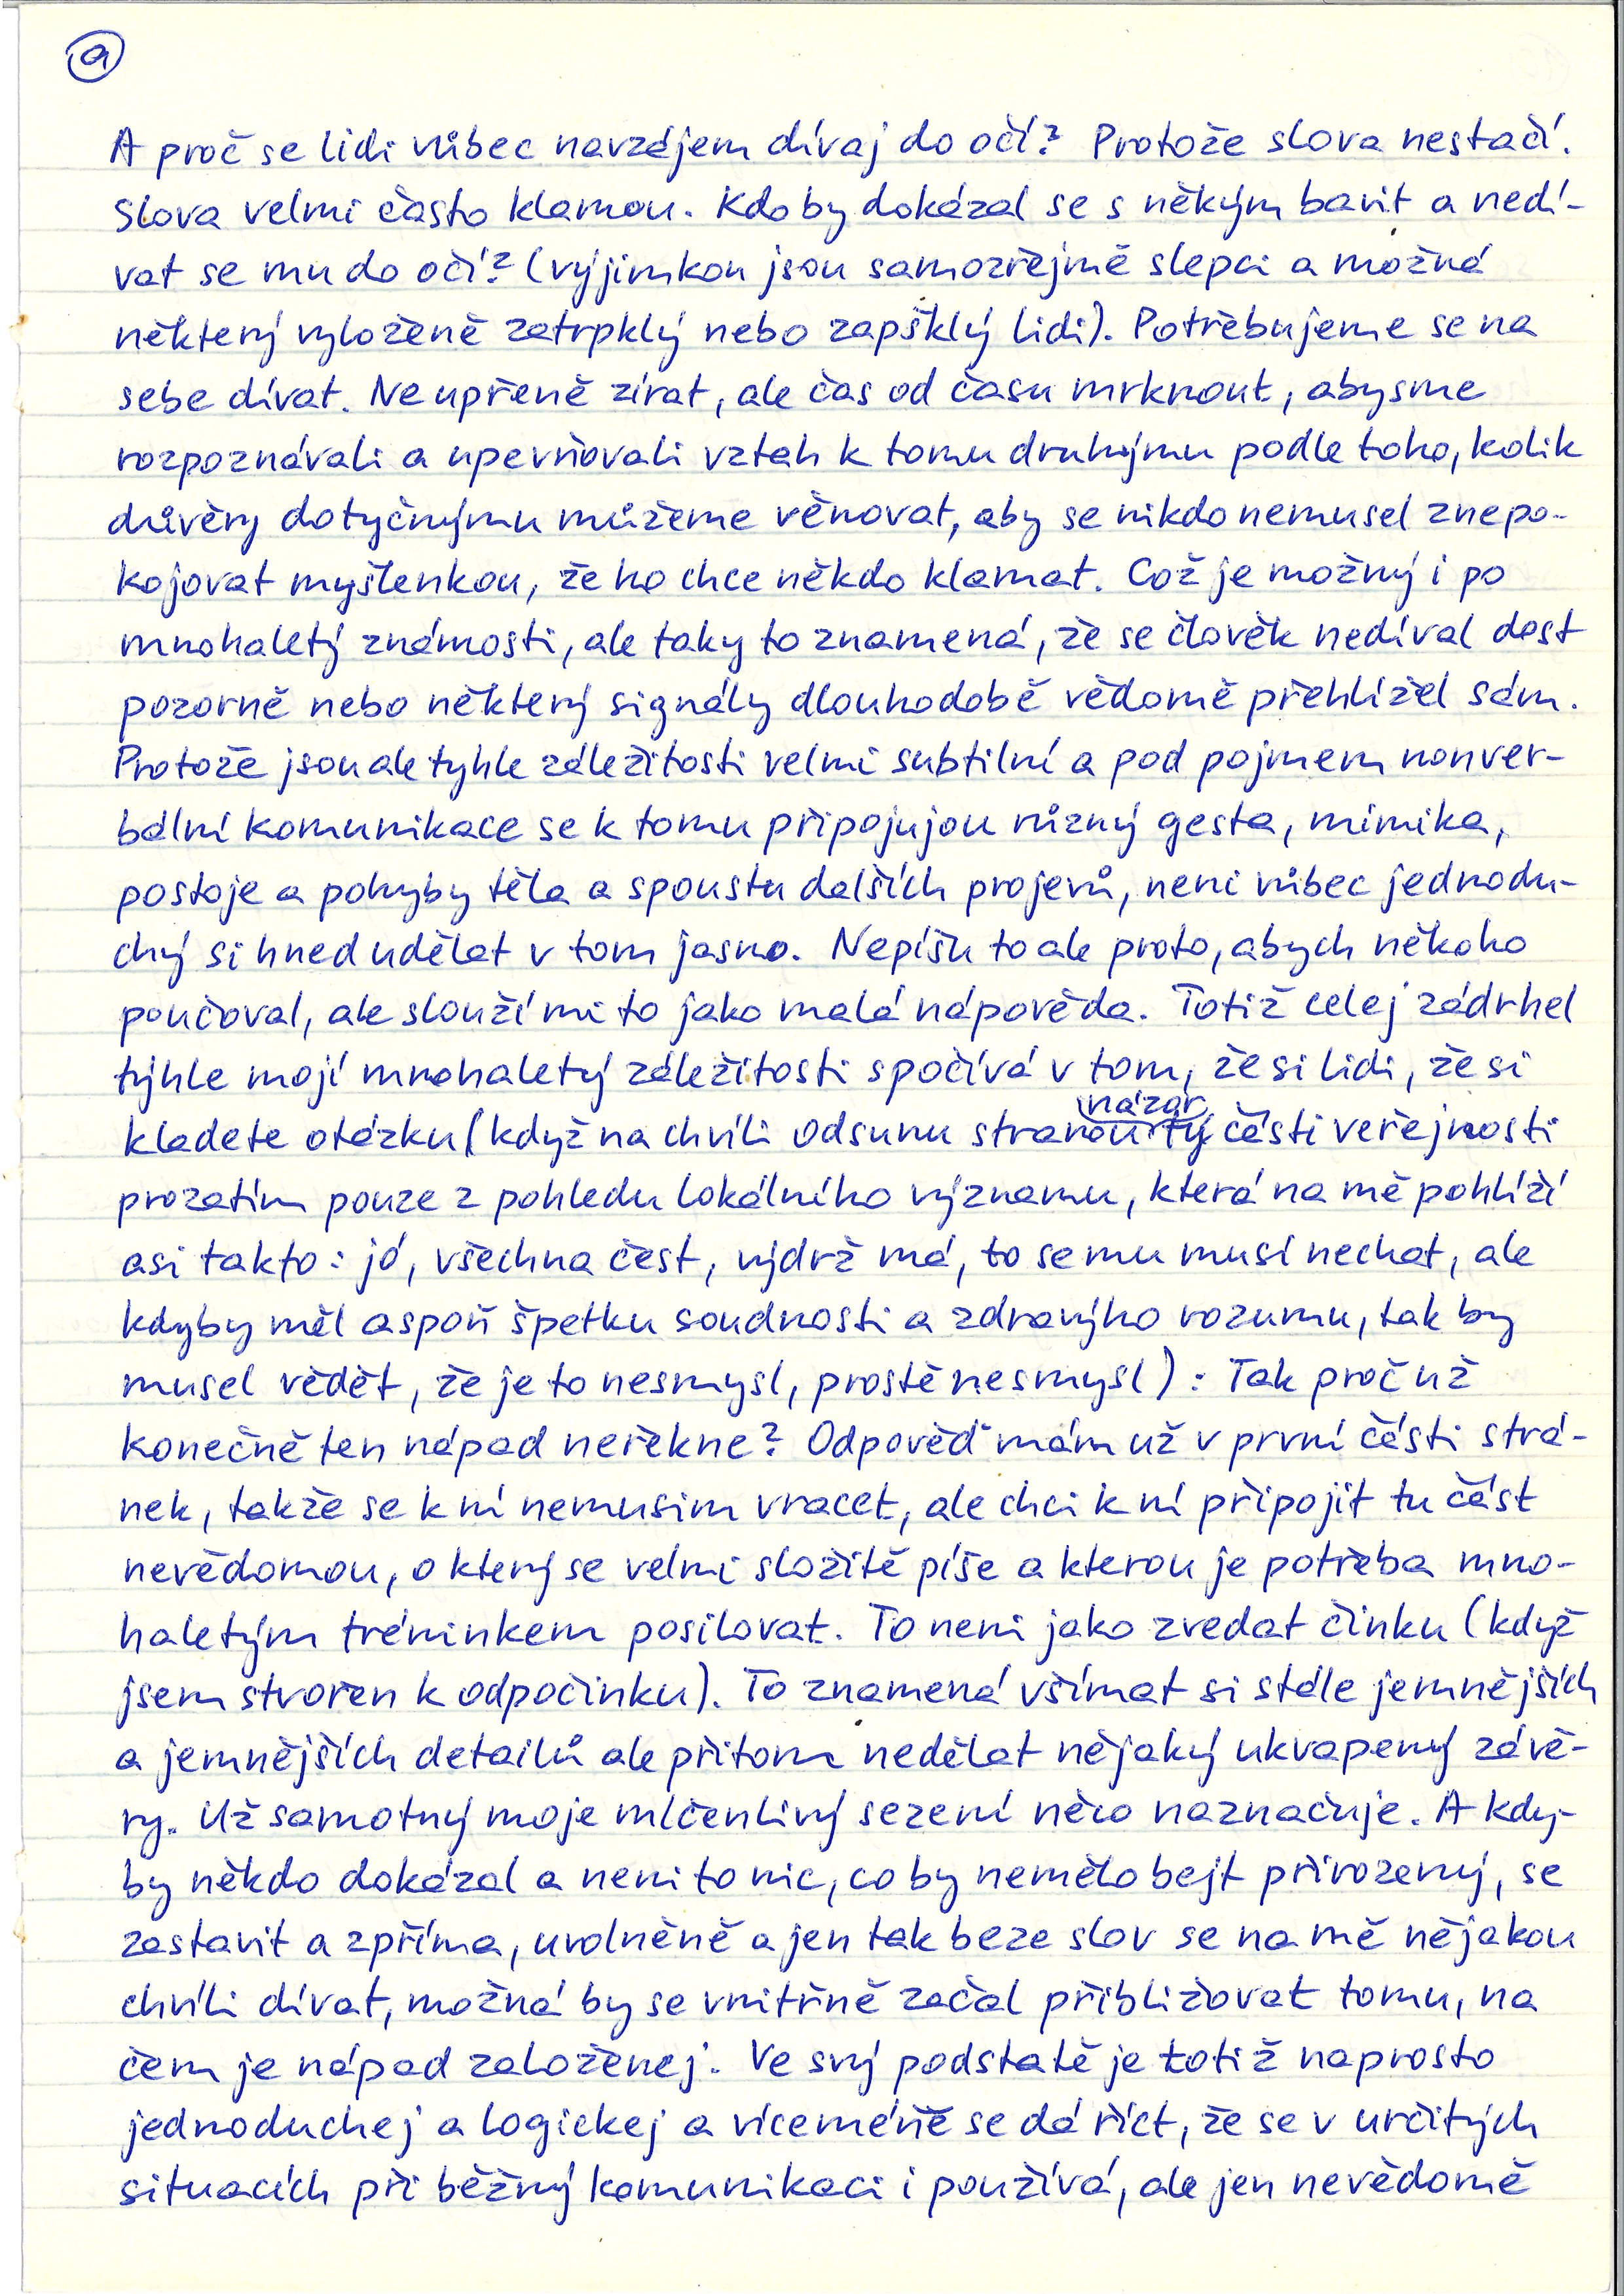 9
A proč se lidi vůbec navzájem dívaj do očí? Protože slova nestačí.
Slova velmi často klamou. Kdo by dokázal se s někým bavit a nedí-
vat se mu do očí? (výjimkou jsou samozřejmě slepci a možná
některý vyloženě zatrpklý nebo zapšklý lidi). Potřebujeme se na
sebe dívat. Ne upřeně zírat, ale čas od času mrknout, abysme
rozpoznávali a upevňovali vztah k tomu druhýmu podle toho, kolik
důvěry dotyčnýmu můžeme věnovat, aby se nikdo nemusel znepo-
kojovat myšlenkou, že ho chce někdo klamat. Což je možný i po
mnohaletý známosti, ale taky to znamená, že se člověk nedíval dost
pozorně nebo některý signály dlouhodobě vědomě přehlížel sám.
Protože jsou ale tyhle záležitosti velmi subtilní a pod pojmem nonver-
bální komunikace se k tomu připojujou různý gesta, mimika,
postoje a pohyby těla a spoustu dalších projevů, neni vůbec jednodu-
chý si hned udělat v tom jasno. Nepíšu to ale proto, abych někoho
poučoval, ale slouží mi to jako malá nápověda. Totiž celej zádrhel
týhle mojí mnohaletý záležitosti spočívá v tom, že si lidi, že si
kladete otázku (když na chvíli odsunu stranou názor tý části veřejnosti
prozatím pouze z pohledu lokálního významu, která na mě pohlíží
asi takto: jó, všechna čest, výdrž má, to se mu musí nechat, ale
kdyby měl aspoň špetku soudnosti a zdravýho rozumu, tak by
musel vědět, že je to nesmysl, prostě nesmysl): Tak proč už
konečně ten nápad neřekne? Odpověď mám už v první části strá-
nek, takže se k ní nemusim vracet, ale chci k ní připojit tu část
nevědomou, o který se velmi složitě píše a kterou je potřeba mno-
haletým tréninkem posilovat. To neni jako zvedat činku (když
jsem stvořen k odpočinku). To znamená všímat si stále jemnějších
a jemnějších detailů ale přitom nedělat nějaký ukvapený závě-
ry. Už samotný moje mlčenlivý sezení něco naznačuje. A kdy-
by někdo dokázal a neni to nic, co by nemělo bejt přirozený, se
zastavit a zpříma, uvolněně a jen tak beze slov se na mě nějakou
chvíli dívat, možná by se vnitřně začal přibližovat tomu, na
čem je nápad založenej. Ve svý podstatě je totiž naprosto
jednoduchej a logickej a víceméně se dá říct, že se v určitých
situacích při běžný komunikaci i používá, ale jen nevědomě